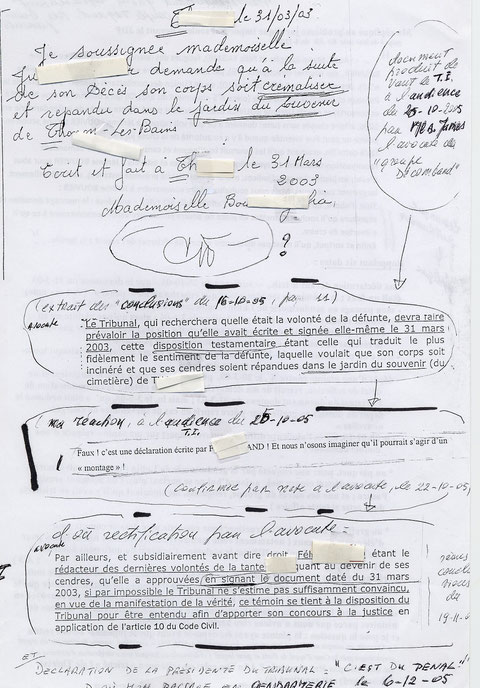 T le 31/03/03.
Je soussignée mademoiselle
demande qu'à la suite
de son Décès son corps soit crématiser
et répandu dans le jardin du souvenir
de Thonon-Les-Bains
Ecrit et fait à Th le 31 Mars
2003
Mademoiselle Bou
?
document
produit de
vant le T.I.
à l'audience
de 25-10-2005
par
l'avocate du
"groupe
(extrait des "conclusions" du 16-10-05, pa
avocate
Le Tribunal, qui recherchera quelle était la volonté de la défunte, devra faire
prévaloir la position qu'elle avait écrite et signée elle-même le 31 mars
2003, cette disposition testamentaire étant celle qui traduit le plus
fidèlement le sentiment de la défunte, laquelle voulait que son corps soit
incinéré et que ses cendres soient répandues dans le jardin du souvenir (du
cimetière) de T
(ma réaction, à l'audience du 25-10-05
T.I.
Faux ! c'est une déclaration écrite par F AND ! Et nous n'osons imaginer qu'il pourrait s'agir d'un
« montage » !
(confirmée par note à l'avocate, le 22-10-05)
d'où rectification par l'avocate =
avocate
Par ailleurs, et subsidiairement avant dire droit, Fél étant le
rédacteur des dernières volontés de la tante quant au devenir de ses
cendres, qu'elle a approuvées en signant le document daté du 31 mars
2003, si par impossible le Tribunal ne s'estime pas suffisamment convaincu,
en vue de la manifestation de la vérité, ce témoin se tient à la disposition du
Tribunal pour être entendu afin d'apporter son concours à la justice en
application de l'article 10 du Code Civil.
du
19-11-0
ET
DECLARATION DE LA PRÉSIDENTE DU TRIBUNAL = "C'EST DU PENAL"
D'OÙ MON PASSAGE EN GENDARMERIE le 6-12-05